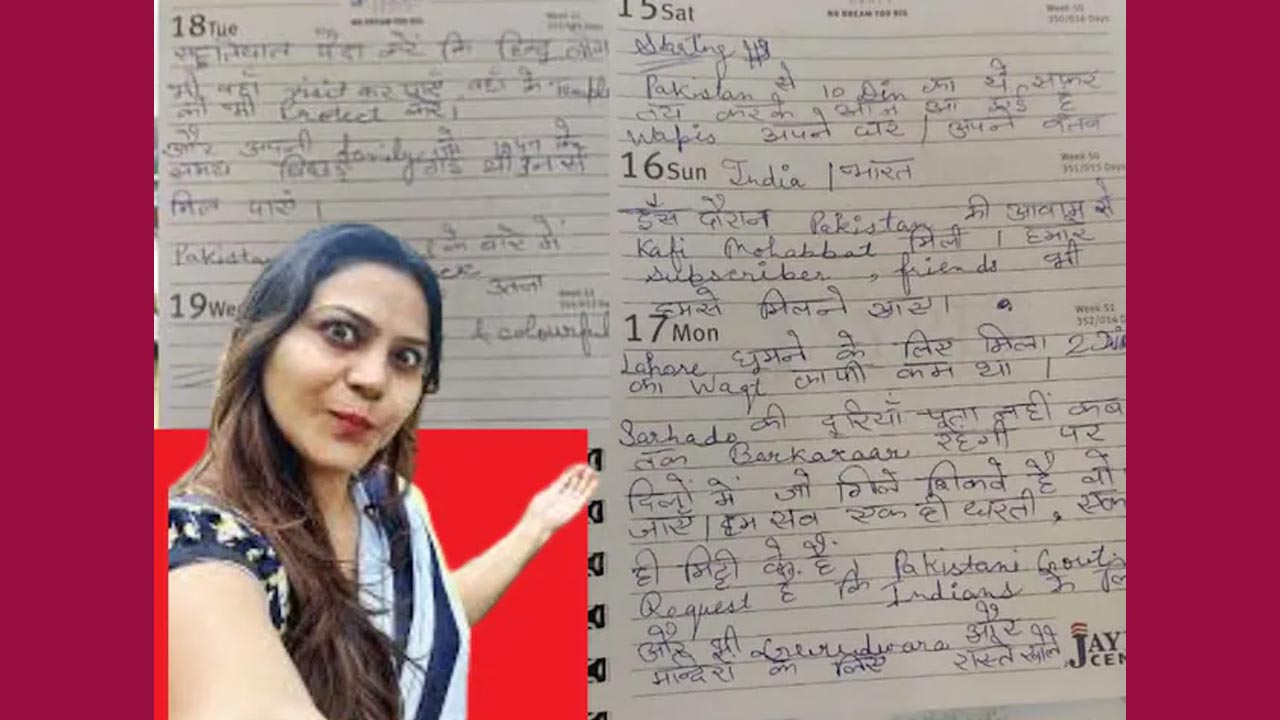 18 Tue
NO DREAM TOO BIG
पैदा करें कि हिन्दु लोग
भी वहाँ visit कर पाएँ वहाँ के Temple
को भी Protect करें।
और अपनी family से 1947 के
समय बिछड़ गई थी उनसे
मिल पाएँ।
के बारे में
उतना
19 We
& colourful
15 Sat
NO DREAM TOO BIG
Week 50
350/016 Days
Starting
Pakistan से 10 Din का ये सफ़र
तय करके आज आ गई है
Wapis अपने घर | अपने वतन
16 Sun
Week 50
351/015 Days
India | भारत
इस दौरान Pakistan की आवाम से
Kafi Mohabbat मिली | हमारे
subscriber, friends भी
हमसे मिलने आए।
17 Mon
Week 51
352/014 D
Lahore घुमने के लिए मिला 2 Din
का Waqt काफी कम था |
Sarhado की दूरियाँ पता नहीं कब
तक Barkaraar रहेगी पर
दिलों में जो गिले शिकवे है वो
जाएँ | हम सब एक ही धरती, एक
ही मिट्टी के है, Pakistani Govt
Request है कि Indians के
और भी Gurudwara और
मन्दिरों के लिए रास्ते खोले
JAY
CEN